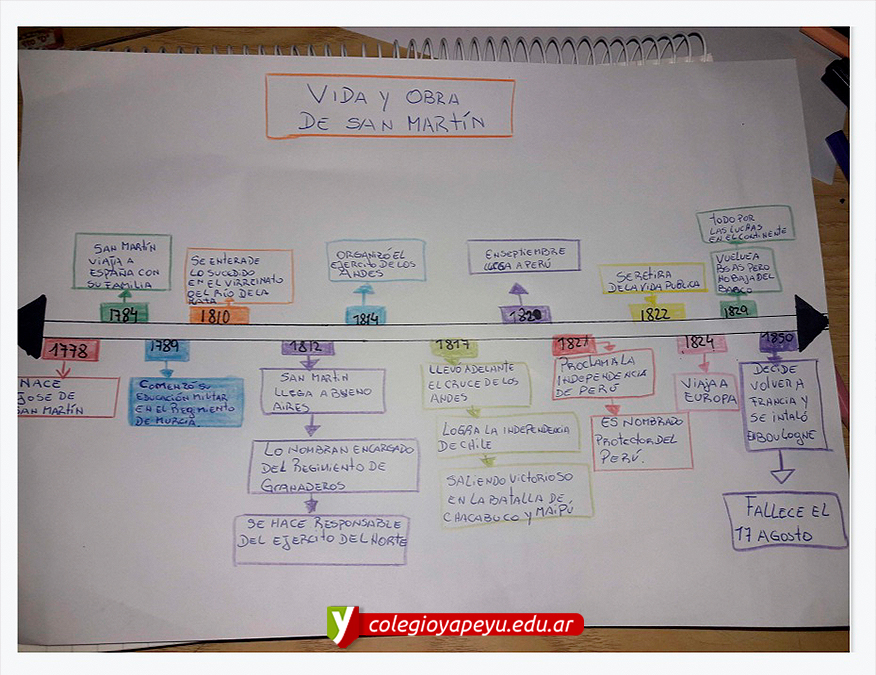 VIDA Y OBRA
DE SAN MARTÍN
SAN MARTÍN
VIAJA A
ESPAÑA CON
SU FAMILIA
1784
SE ENTERA DE
LO SUCEDIDO
EN EL VIRREINATO
DEL RÍO DE LA
PLATA
1810
ORGANIZÓ EL
EJERCITO DE LOS
ANDES
1814
EN SEPTIEMBRE
LLEGA A PERÚ
1820
SE RETIRA
DE LA VIDA PUBLICA
1822
TODO POR
LAS LUCHAS
EN EL CONTINENTE
VUELVE A
BS AS PERO
NO BAJA DEL
BARCO
1829
1778
NACE
JOSE DE
SAN MARTÍN
1789
COMENZÓ SU
EDUCACIÓN MILITAR
EN EL REGIMIENTO
DE MURCIA.
1812
SAN MARTIN
LLEGA A BUENO
AIRES
LO NOMBRAN ENCARGADO
DEL REGIMIENTO DE
GRANADEROS
SE HACE RESPONSABLE
DEL EJERCITO DEL NORTE
1817
LLEVÓ ADELANTE
EL CRUCE DE LOS
ANDES
LOGRA LA INDEPENDENCIA
DE CHILE
SALIENDO VICTORIOSO
EN LA BATALLA DE
CHACABUCO Y MAIPÚ
1821
PROCLAMA LA
INDEPENDENCIA
DE PERÚ
ES NOMBRADO
PROTECTOR DEL
PERÚ.
1824
VIAJA A
EUROPA
1850
DECIDE
VOLVER A
FRANCIA Y
SE INTALÓ
EN BOULOGNE
FALLECE EL
17 AGOSTO
y colegioyapeyu.edu.ar